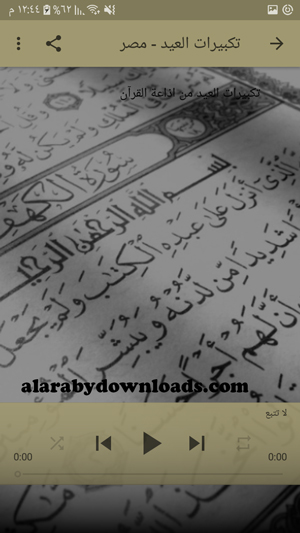 ١٢:٤٤ م
٦٢%
تكبيرات العيد - مصر
تكبيرات العيد من اذاعة القرآن
سورة الكهف
بسم الله الرحمن الرحيم
أنزل على عبده الكتاب ولم يجعل
شديدا من لدنه ويبشر
أن لهم أجرا
alarabydownloads.com
لا تتبع
0:00
0:00